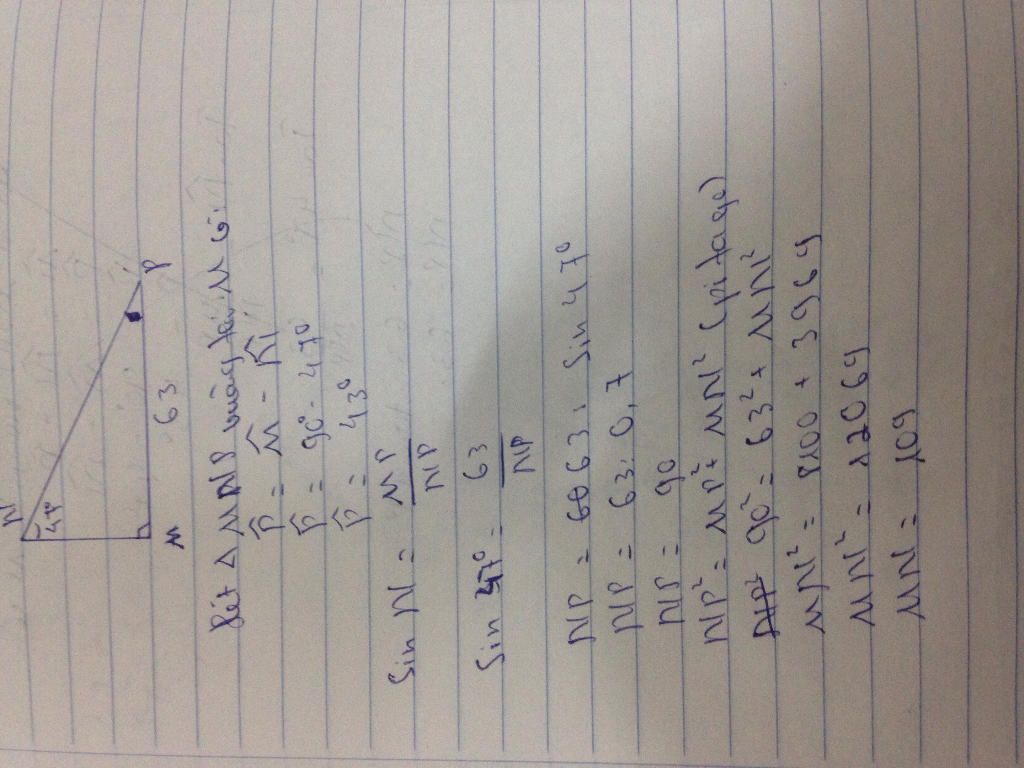 N
47°
M
63
P
Xét Δ MNP vuông tại M có:
P̂ = M̂ - N̂
P̂ = 90° - 47°
P̂ = 43°
Sin N = MP/NP
Sin 47° = 63/NP
NP = 63 : Sin 47°
NP = 63 : 0,7
NP = 90
NP² = MP² + MN² (pi ta go)
90² = 63² + MN²
MN² = 8100 + 3969
MN² = 12069
MN = 109